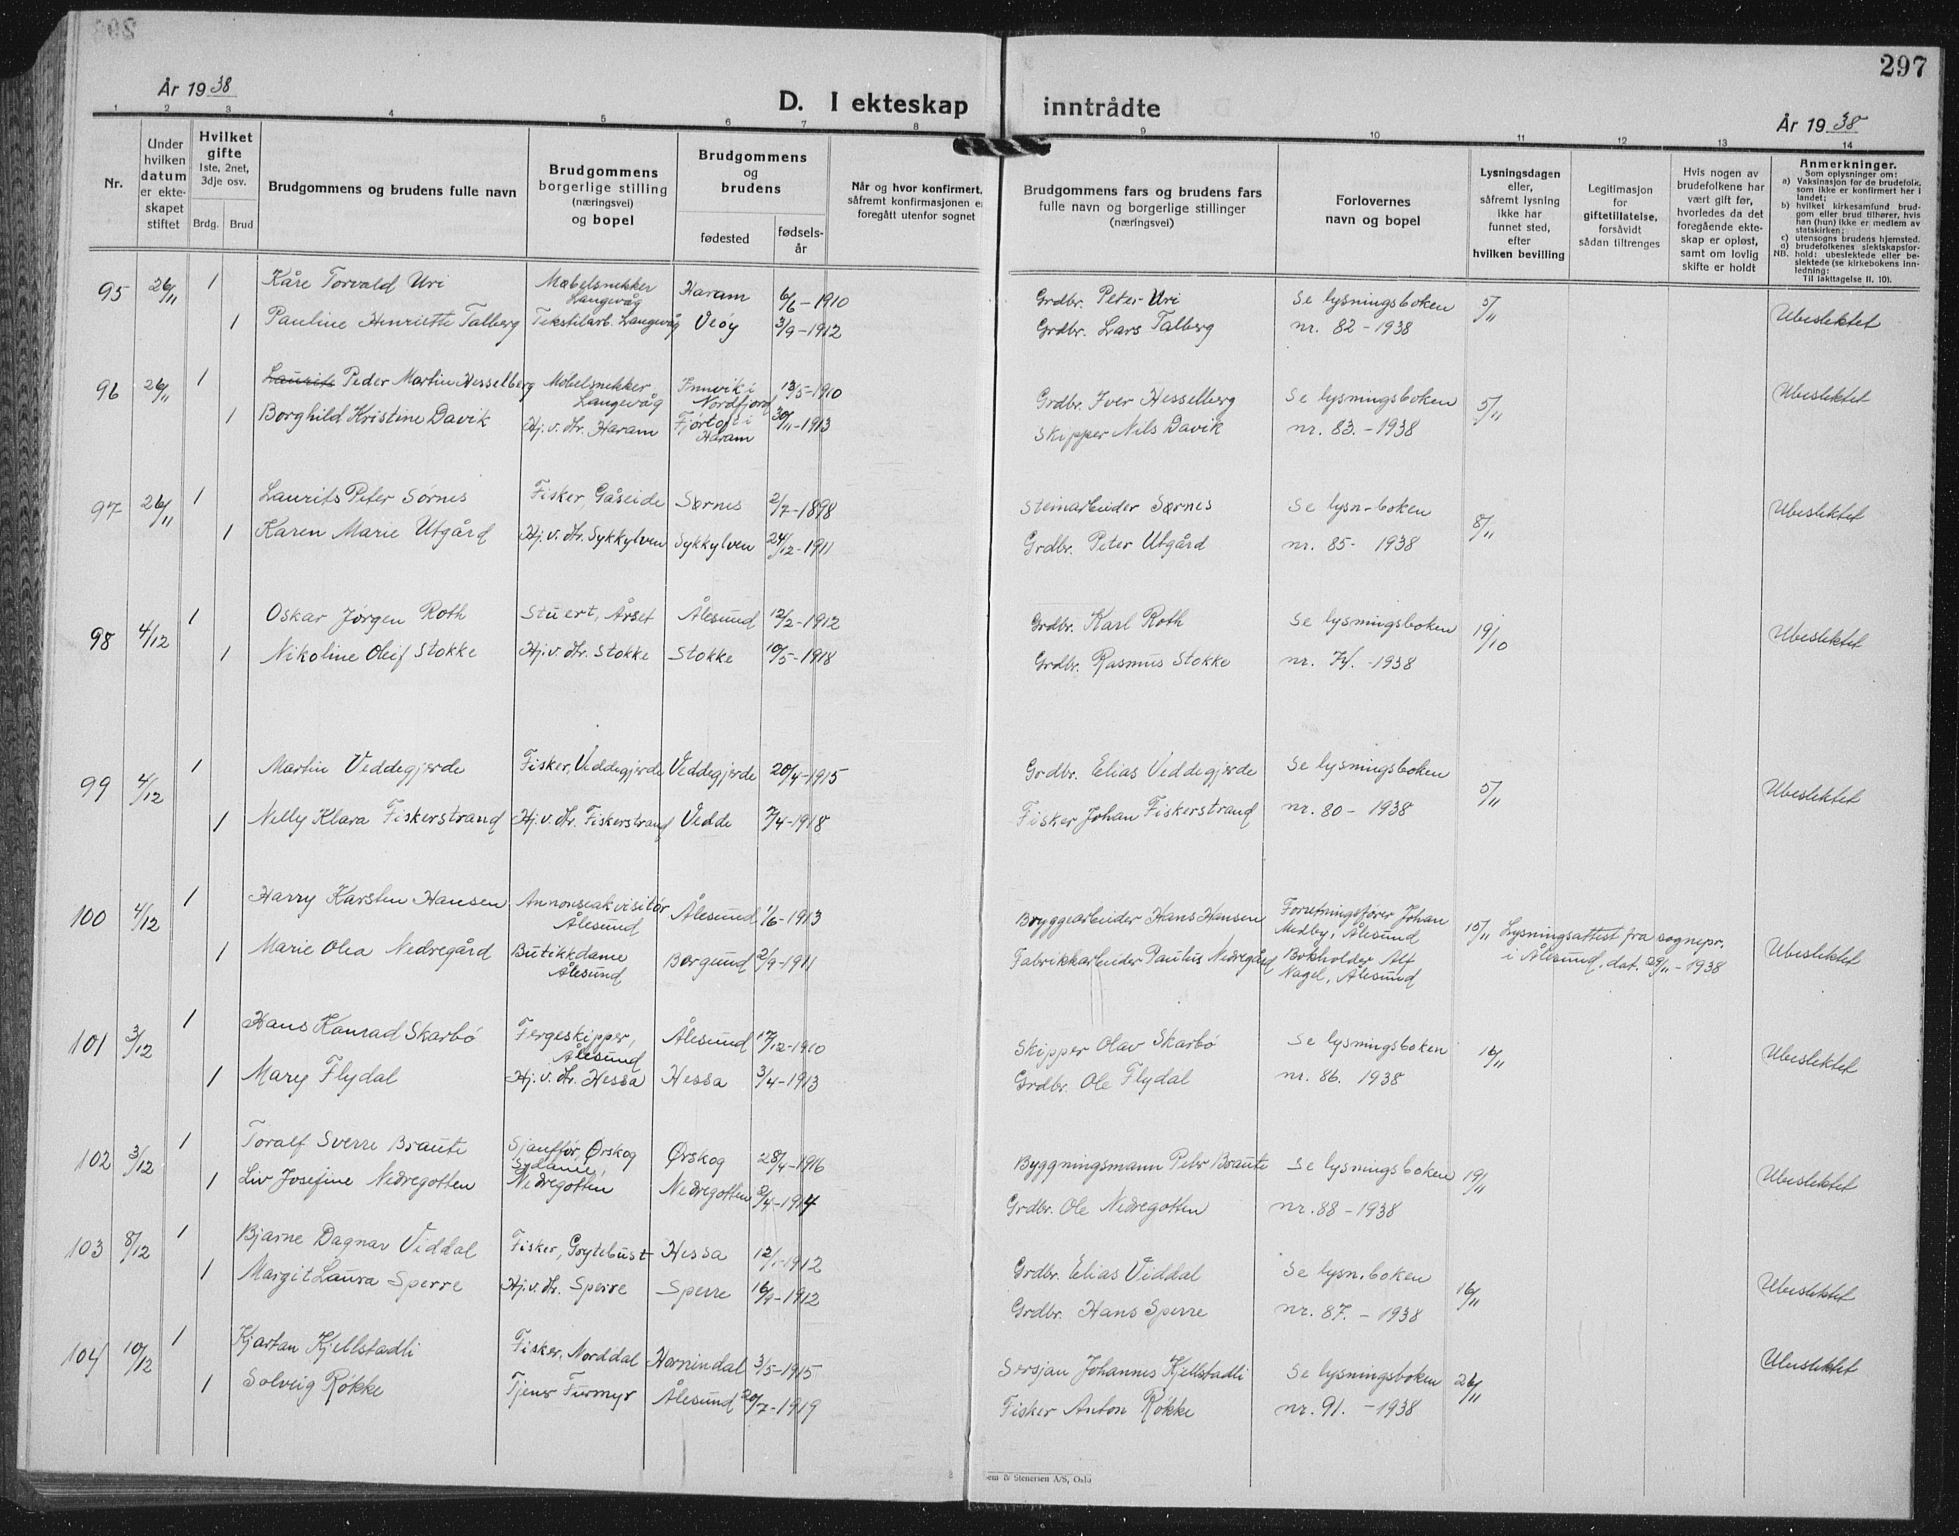 297
År 1938
D. I ekteskap inntrådte
År 1938
1 2 3 4 5 6 7 8 9 10 11 12 13 14
Nr.
Under hvilken datum er ekteskapet stiftet
Hvilket gifte
1ste, 2net, 3dje osv.
Brdg. Brud
Brudgommens og brudens fulle navn
Brudgommens borgerlige stilling (næringsvei) og bopel
Brudgommens og brudens
fødested
fødselsår
Når og hvor konfirmert,
såfremt konfirmasjonen e
foregått utenfor sognet
Brudgommens fars og brudens fars
fulle navn og borgerlige stillinger
(næringsvei)
Forlovernes
navn og bopel
Lysningsdagen
eller,
såfremt lysning
ikke har
funnet sted,
efter
hvilken bevilling
Legitimasjon
for
giftetillatelse,
forsåvidt
sådan tiltrenges
Hvis nogen av
brudefolkene har
vært gift før,
hvorledes da det
foregående ekte-
skap er opløst,
samt om lovlig
skifte er holdt
Anmerkninger.
Som oplysninger om:
a) Vaksinasjon for de brudefolk,
som ikke er konfirmert her i
landet;
b) hvilket kirkesamfund brud-
gom eller brud tilhører, hvis
han (hun) ikke er medlem av
statskirken;
c) utensogns brudens hjemsted.
d) brudefolkenes slektskapsfor-
NB. hold: ubeslektede eller be-
slektede (se kirkebokens inn-
ledning:
Til Iakttagelse II. 10).
95 26/11 1 Kåre Torvald Uri Møbelsnekker Langevåg Haram 6/6-1910 Grdbr. Peter Uri Se lysningsboken 5/11 Ubeslektet
1 Pauline Henriette Talberg Tekstilarb. Langevåg Veøy 3/9-1912 Grdbr. Lars Talberg nr. 82-1938
96 26/11 1 Laurits Peder Martin Hesselberg Møbelsnekker Langevåg Innvik i Nordfjord 13/5-1910 Grdbr. Iver Hesselberg Se lysningsboken 5/11 Ubeslektet
1 Borghild Kristine Davik Hj.v. Hr. Haram Fjørtoft i Haram 30/11-1913 Skipper Nils Davik nr. 83.-1938
97 26/11 1 Laurits Peter Sørnes Fisker, Gåseide Sørnes 2/7-1898 Steinarbeider Sørnes Se lysn.boken 8/11 Ubeslektet
1 Karen Marie Utgård Hj.v. Hr. Sykkylven Sykkylven 24/12-1911 Grdbr. Peter Utgård nr. 85-1938
98 4/12 1 Oskar Jørgen Roth Stuert, Årset Ålesund 12/2-1912 Grdbr. Karl Roth Se lysningsboken 19/10 Ubeslektet
1 Nikoline Oleif Stokke Hj.v. Hr. Stokke Stokke 10/5-1918 Grdbr. Rasmus Stokke nr. 74.-1938
99 4/12 1 Martin Veddegjerde Fisker, Veddegjerde Veddegjerde 20/4-1915 Grdbr. Elias Veddegjerde Se lysningsboken 5/11 Ubeslektet
1 Nelly Klara Fiskerstrand Hj.v. Hr. Fiskerstrand Vedde 7/4-1918 Fisker Johan Fiskerstrand nr. 80-1938
100 4/12 1 Harry Karsten Hansen Annonseakvisitør Ålesund Ålesund 1/6-1913 Byggearbeider Hans Hansen Forretningsfører Johan Medby, Ålesund 15/11 Lysningsattest fra sognepr. i Ålesund, dat. 29/11-1938 Ubeslektet
1 Marie Olea Nedregård Butikkdame Ålesund Borgund 2/9-1911 Fabrikkarbeider Paulus Nedregård Bokholder Alf Nagel, Ålesund
101 3/12 1 Hans Konrad Skarbø Fergeskipper, Ålesund Ålesund 17/12-1910 Skipper Olav Skarbø Se lysningsboken 16/11 Ubeslektet
1 Mary Flydal Hj.v. Hr. Hessa Hessa 3/4-1913 Grdbr. Ole Flydal nr. 86. 1938
102 3/12 1 Toralf Sverre Braute Sjauffør, Ørskog Ørskog 28/4-1916 Byggningsmann Peter Braute Se lysningsboken 19/11 Ubeslektet
1 Liv Josefine Nedregotten Sydame, Nedregotten Nedregotten 2/4-1914 Grdbr. Ole Nedregotten nr. 88-1938
103 8/12 1 Bjarne Dagnar Viddal Fisker, Grytebust Hessa 12/1-1912 Grdbr. Elias Viddal Se lysn.boken 16/11 Ubeslektet
1 Margit Laura Sperre Hj.v. Hr. Sperre Sperre 16/9-1912 Grdbr. Hans Sperre nr. 87.-1938
104 10/12 1 Kjartan Kjellstadli Fisker, Norddal Hornindal 3/5-1915 Sersjan Johannes Kjellstadli Se lysningsboken 26/11 Ubeslektet
1 Solveig Røkke Tjener Furmyr Ålesund 20/7-1919 Fisker Anton Røkke nr. 91.-1938
sem & Stenersen A/S, Oslo